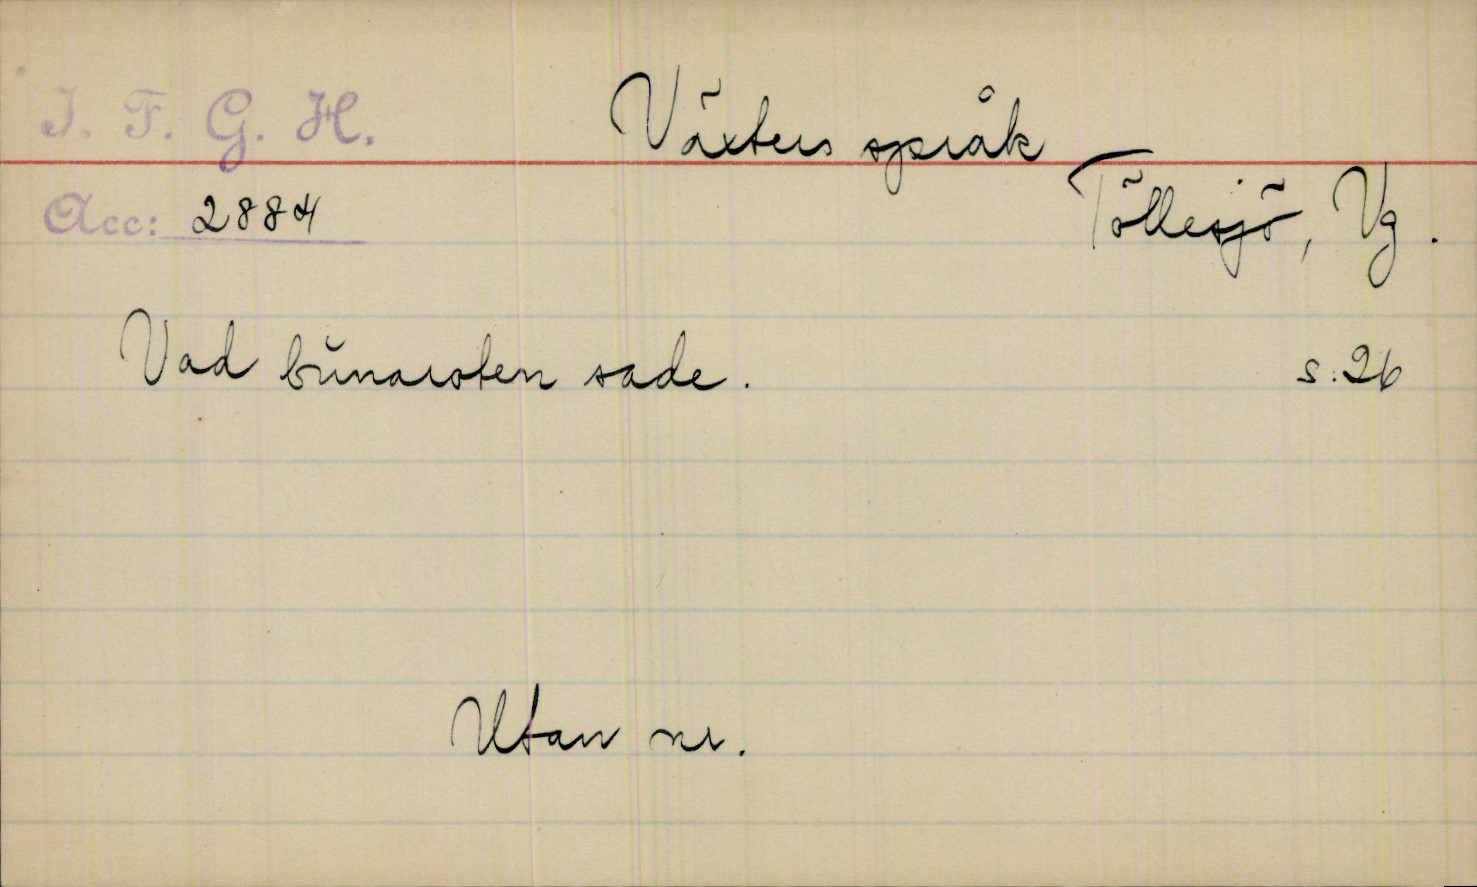 I. F. G. H.
Växters språk
Acc: 2884
Töllesjö, Vg.
Vad bunaroten sade. s. 26
Utan nr.